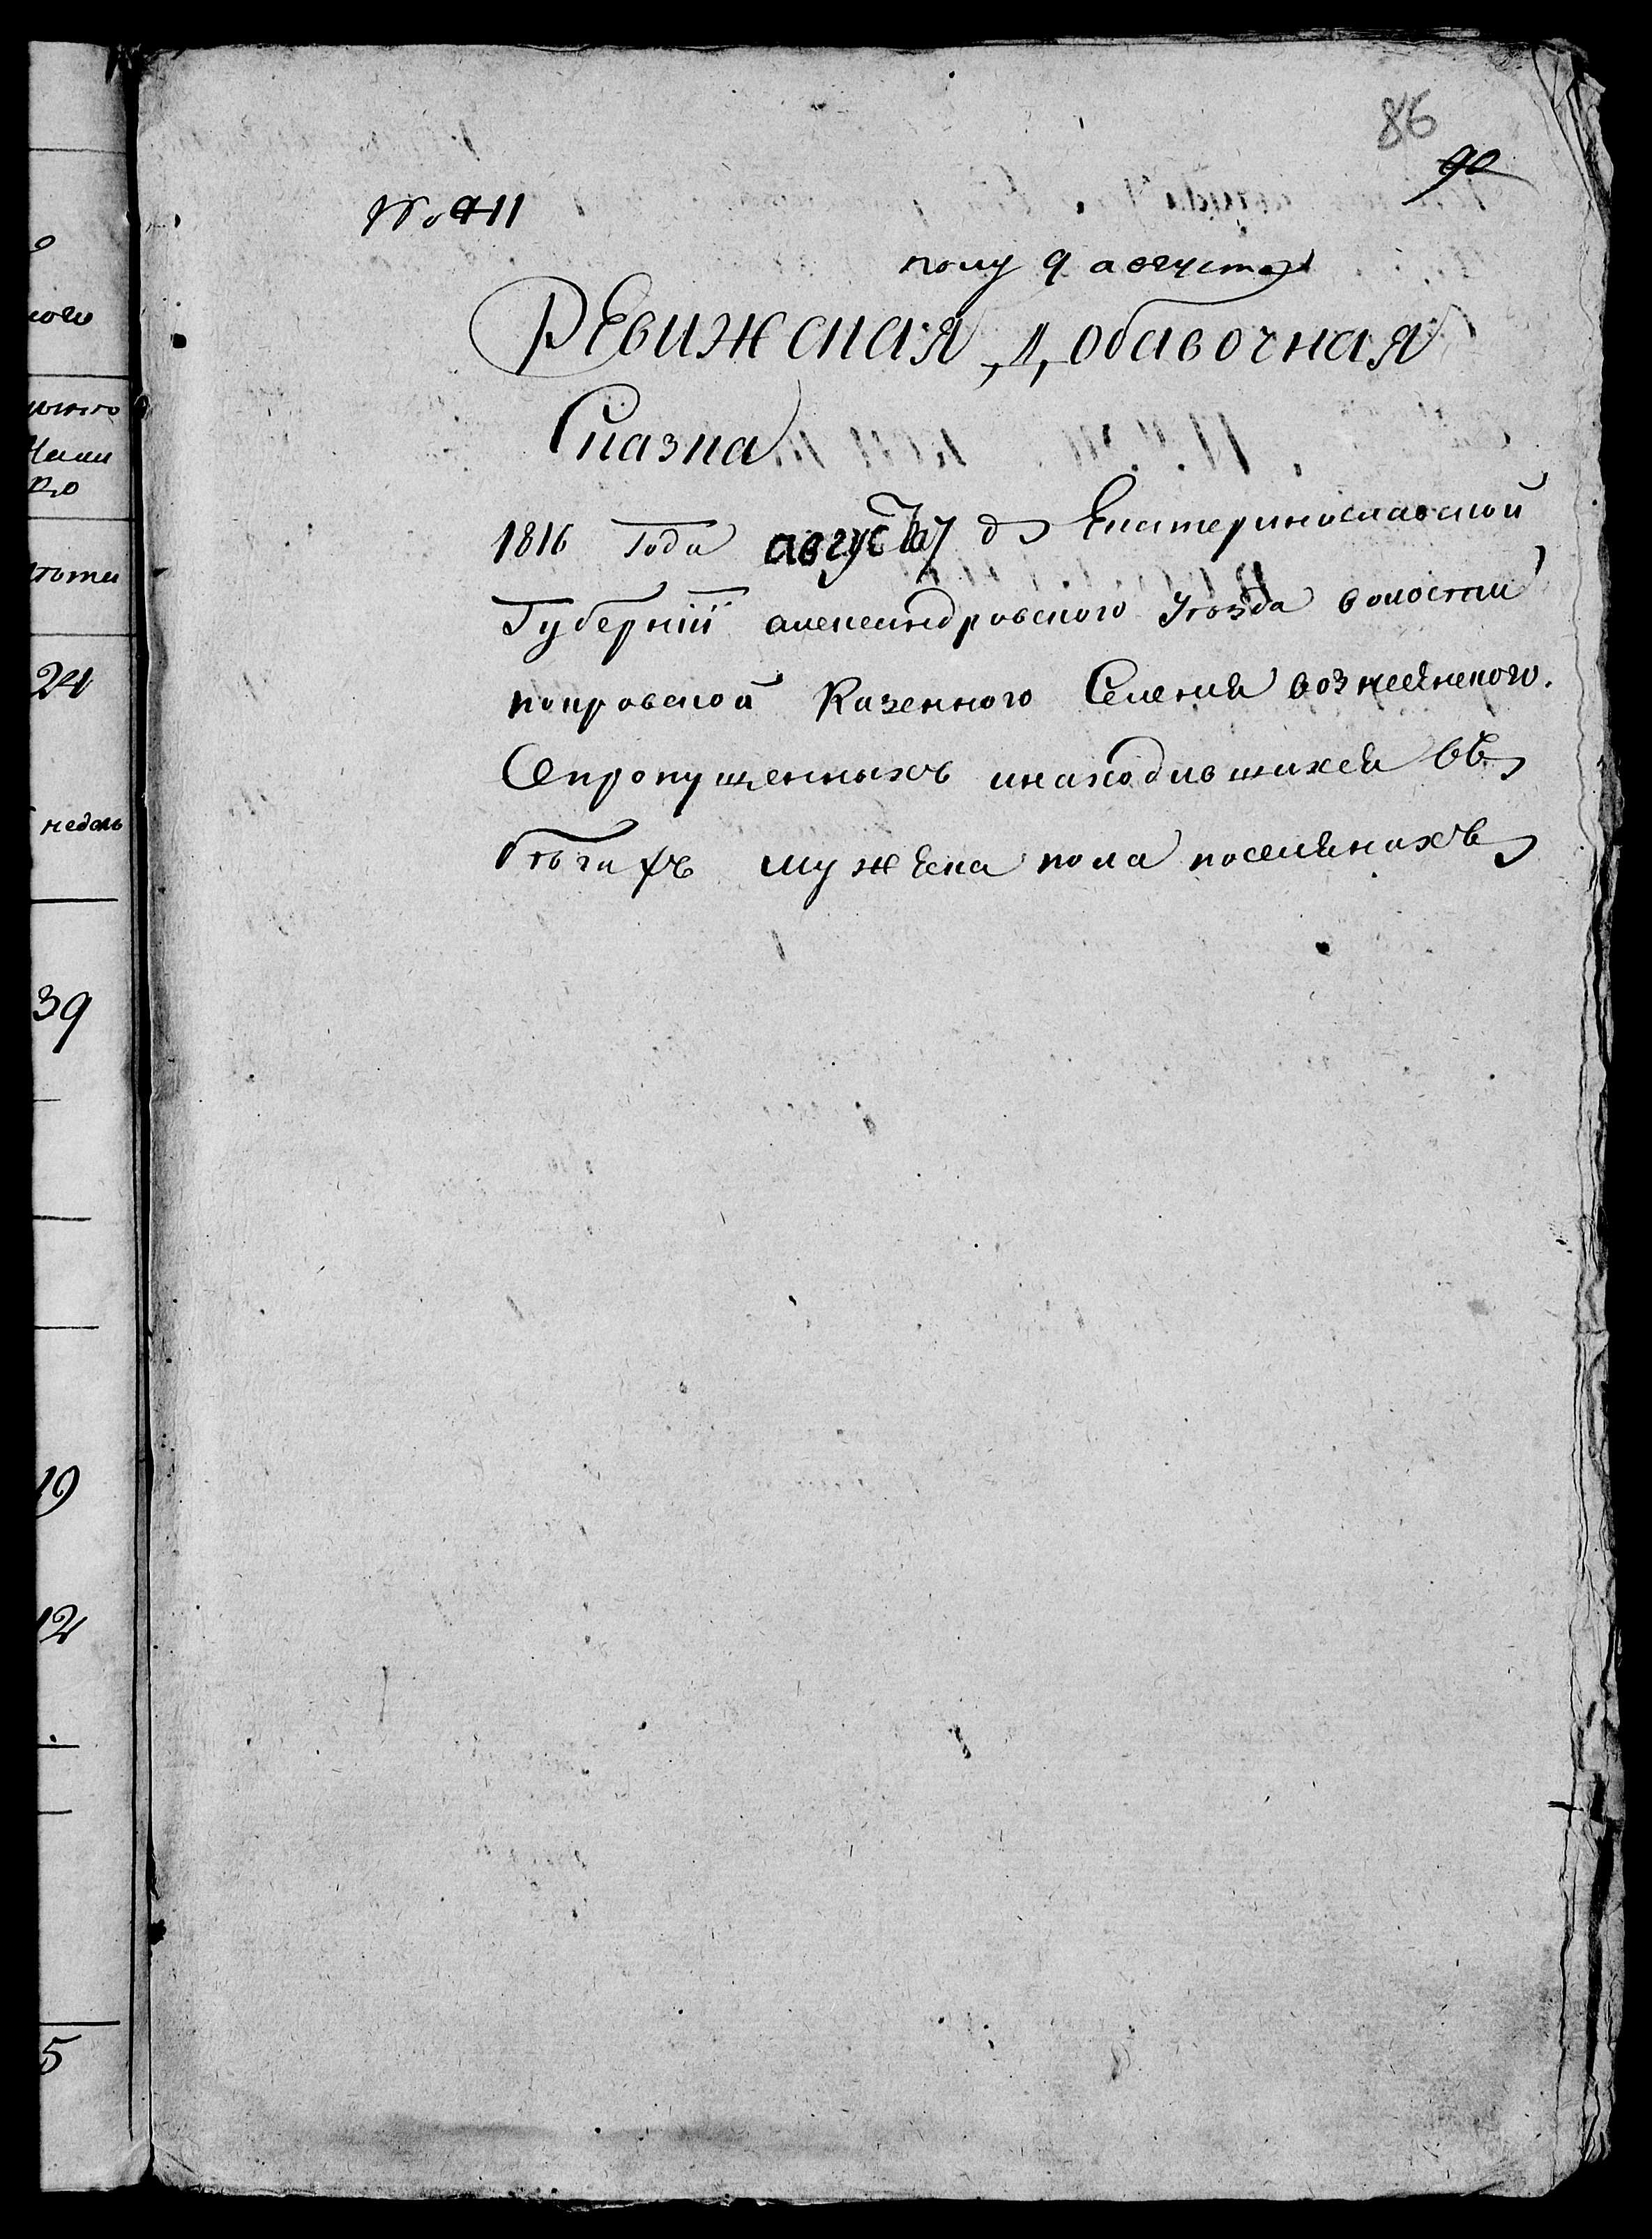 86
90
№ 411
полу 9 августа
Ревижская Добавочная
Сказка
1816 Года августа 7 д Екатеринославской
Губернiи александровского Уѣзда волости
покровской Казенного Селения вознесенского.
О пропущенныхъ инаходившихся въ
бѣгахъ мужеска пола поселянахъ
24
недель
39
19
12
5